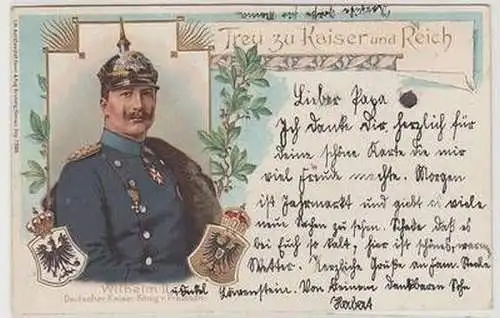 Treu zu Kaiser und Reich
Lieber Papa
Ich danke Dir herzlich für
deine schöne Karte die mir
viel Freude machte. Morgen
ist Jahrmarkt und giebt es viele
neue Sachen zu sehen. Schade daß es
bei Euch so kalt, hier ist schönes, warm
Wetter. Herzliche Grüße an Fam.
Löwenstein. Von Deinem dankbaren Sohn
Wilhelm II
Deutscher Kaiser König v. Preussen.